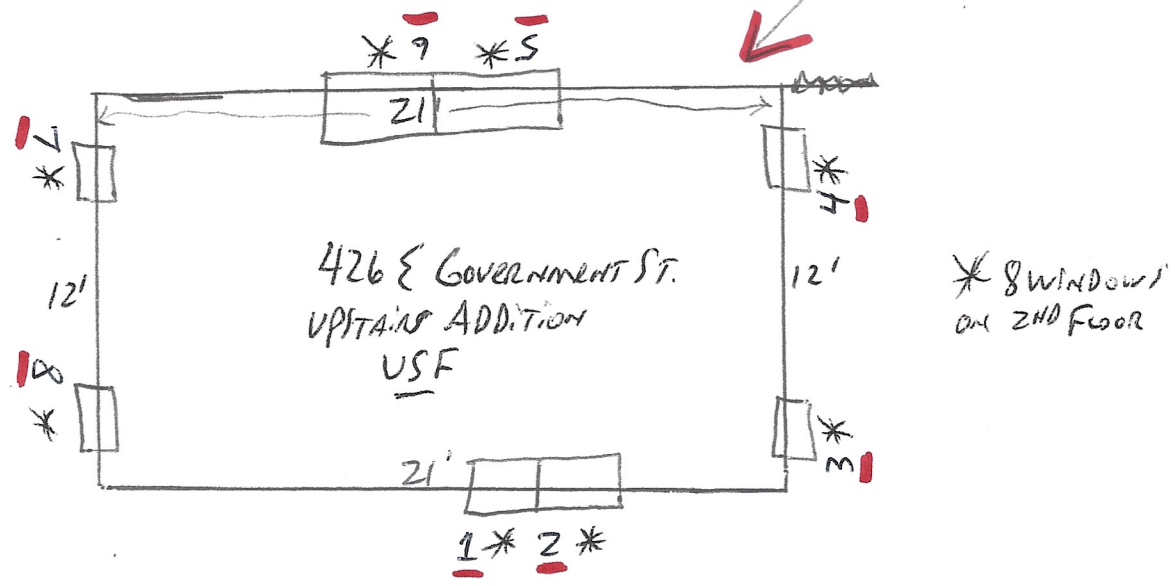 * 6 * 5
21'
* 7
* 4
426 E GOVERNMENT ST.
UPSTAIRS ADDITION
USF
12'
12'
* 8 WINDOWS
ON 2ND FLOOR
* 8
* 3
21'
1 * 2 *